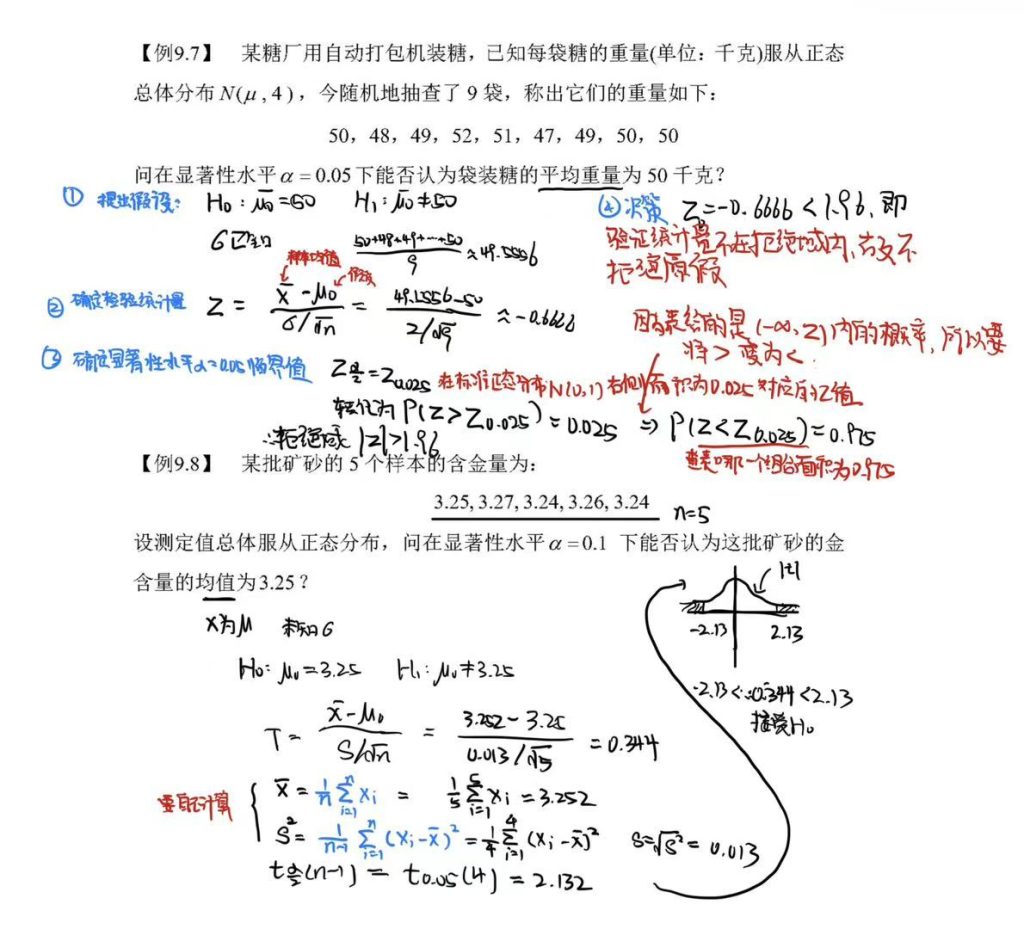 【例9.7】 某糖厂用自动打包机装糖，已知每袋糖的重量(单位：千克)服从正态
总体分布 N(μ, 4)，今随机地抽查了 9 袋，称出它们的重量如下：
50，48，49，52，51，47，49，50，50
问在显著性水平 α = 0.05 下能否认为袋装糖的平均重量为 50 千克？
① 提出假设： H₀：μ̄₀=50 H₁：μ̄₀≠50
σ已知 (50+48+49+…+50)/9 ≈49.5556
样本均值 假设
② 确定检验统计量 Z = (x̄-μ₀)/(σ/√n) = (49.5556-50)/(2/√9) ≈ -0.6666
③ 确定显著性水平α=0.05临界值 Z_{α/2}=Z_{0.025} 在标准正态分布N(0,1)右侧面积为0.025对应的Z值
转化为 P(Z>Z_{0.025})=0.025 ⇒ P(Z<Z_{0.025})=0.975
∴拒绝域 |Z|>1.96
查表哪一个组合面积为0.975
④ 决策 Z=-0.6666<1.96，即
验证统计量不在拒绝域内，故不
拒绝原假
因为表给的是(-∞,Z)内的概率，所以要
将 > 变为 <
【例9.8】 某批矿砂的 5 个样本的含金量为：
3.25, 3.27, 3.24, 3.26, 3.24 n=5
设测定值总体服从正态分布，问在显著性水平 α = 0.1 下能否认为这批矿砂的金
含量的均值为 3.25？
x̄为μ 未知σ
H₀：μ₀=3.25 H₁：μ₀≠3.25
T= (x̄-μ₀)/(S/√n) = (3.252-3.25)/(0.013/√5) = 0.344
要自己计算
x̄ = 1/n Σ_{i=1}^{n} xᵢ = 1/5 Σ_{i=1}^{5} xᵢ = 3.252
S² = 1/(n-1) Σ_{i=1}^{n} (xᵢ-x̄)² = 1/4 Σ_{i=1}^{4} (xᵢ-x̄)² S=√S² = 0.013
t_{α/2}(n-1) = t_{0.05}(4) = 2.132
|t|
-2.13 2.13
-2.13<0.344<2.13
接受H₀